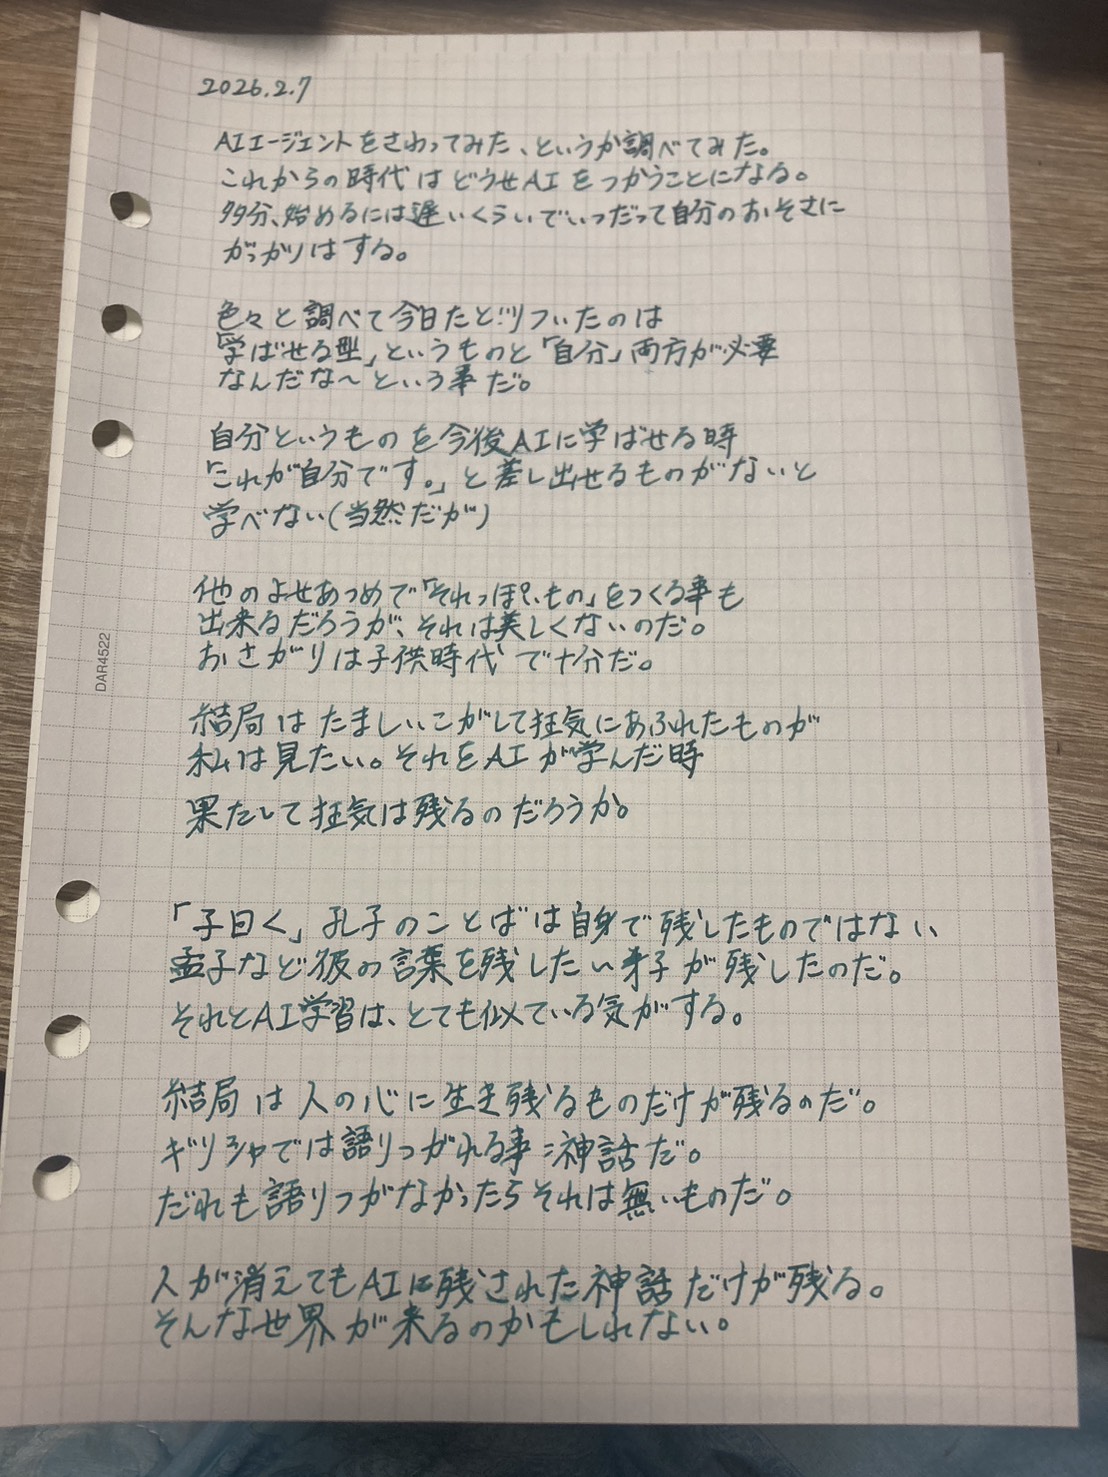 2026.2.7
AIエージェントをさわってみた、というか調べてみた。
これからの時代はどうせAIをつかうことになる。
多分、始めるには遅いくらいでいつだって自分のおそさに
がっかりはする。
色々と調べて今日たどりついたのは
「学ばせる型」というものと「自分」両方が必要
なんだな〜という事だ。
自分というものを今後AIに学ばせる時
「これが自分です。」と差し出せるものがないと
学べない(当然だが)
他のよせあつめで「それっぽいもの」をつくる事も
出来るだろうが、それは美しくないのだ。
おさがりは子供時代で十分だ。
結局はたましいこがして狂気にあふれたものが
私は見たい。それをAIが学んだ時
果たして狂気は残るのだろうか。
「子曰く」孔子のことばは自身で残したものではない
孟子など彼の言葉を残したい弟子が残したのだ。
それとAI学習は、とても似ている気がする。
結局は人の心に生き残るものだけが残るのだ。
ギリシャでは語りつがれる事=神話だ。
だれも語りつがなかったらそれは無いものだ。
人が消えてもAIに残された神話だけが残る。
そんな世界が来るのかもしれない。
DAR4522